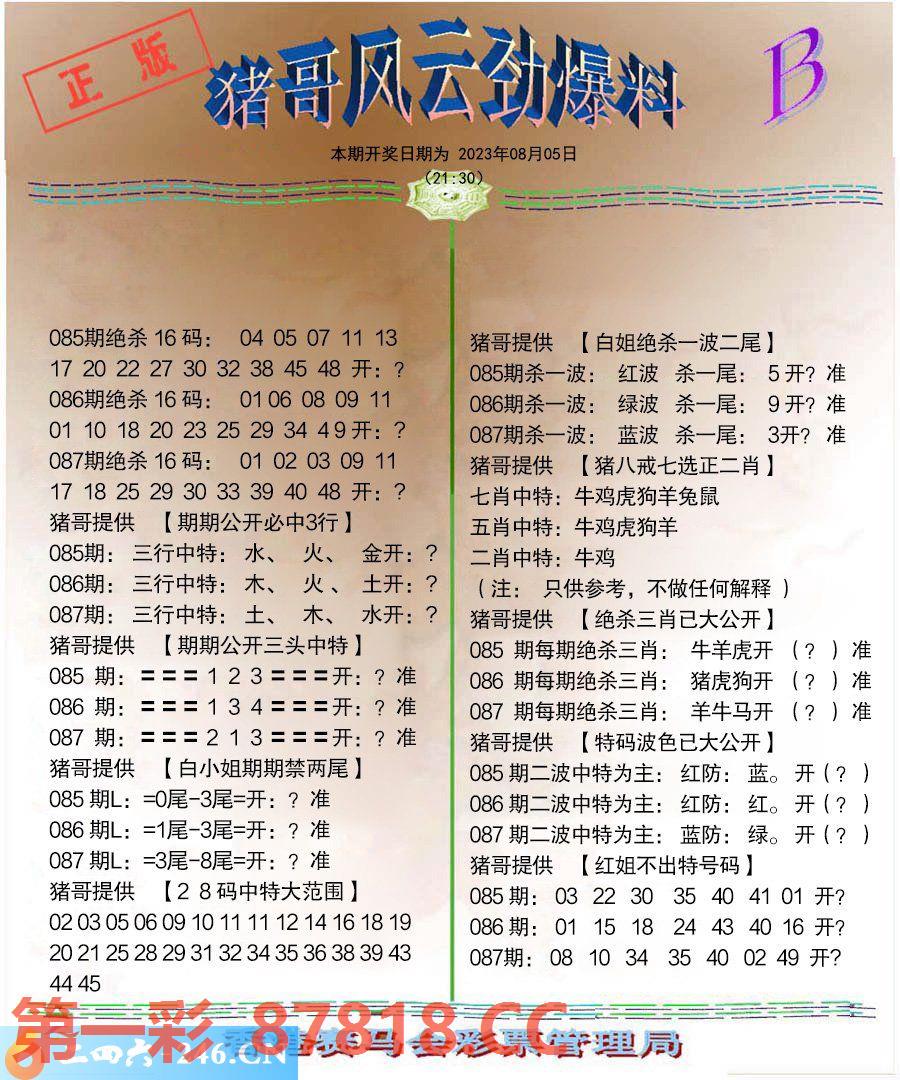 正版
猪哥风云劲爆料
B
本期开奖日期为 2023年08月05日
(21:30)
085期绝杀 16 码： 04 05 07 11 13
17 20 22 27 30 32 38 45 48 开：?
086期绝杀 16 码： 01 06 08 09 11
01 10 18 20 23 25 29 34 4 9 开：?
087期绝杀 16 码： 01 02 03 09 11
17 18 25 29 30 33 39 40 48 开：?
猪哥提供 【期期公开必中3行】
085期： 三行中特： 水、 火、 金开：?
086期： 三行中特： 木、 火、 土开：?
087期： 三行中特： 土、 木、 水开：?
猪哥提供 【期期公开三头中特】
085 期：〓〓〓 1 2 3 〓〓〓开：? 准
086 期：〓〓〓 1 3 4 〓〓〓开：? 准
087 期：〓〓〓 2 1 3 〓〓〓开：? 准
猪哥提供 【白小姐期期禁两尾】
085 期L：=0尾-3尾=开：? 准
086 期L：=1尾-3尾=开：? 准
087 期L：=3尾-8尾=开：? 准
猪哥提供 【2 8 码中特大范围】
02 03 05 06 09 10 11 11 12 14 16 18 19
20 21 25 28 29 31 32 34 35 36 38 39 43
44 45
猪哥提供 【白姐绝杀一波二尾】
085期杀一波： 红波 杀一尾： 5 开? 准
086期杀一波： 绿波 杀一尾： 9 开? 准
087期杀一波： 蓝波 杀一尾： 3开? 准
猪哥提供 【猪八戒七选正二肖】
七肖中特：牛鸡虎狗羊兔鼠
五肖中特：牛鸡虎狗羊
二肖中特：牛鸡
（注： 只供参考，不做任何解释 ）
猪哥提供 【绝杀三肖已大公开】
085 期每期绝杀三肖： 牛羊虎开 （? ）准
086 期每期绝杀三肖： 猪虎狗开 （? ）准
087 期每期绝杀三肖： 羊牛马开 （? ）准
猪哥提供 【特码波色已大公开】
085 期二波中特为主： 红防： 蓝。 开（? ）
086 期二波中特为主： 红防： 红。 开（? ）
087 期二波中特为主： 蓝防： 绿。 开（? ）
猪哥提供 【红姐不出特号码】
085 期： 03 22 30 35 40 41 01 开?
086 期： 01 15 18 24 43 40 16 开?
087期： 08 10 34 35 40 02 49 开?
第一彩 87818.CC
二四六 246.CN
香港赛马会彩票管理局